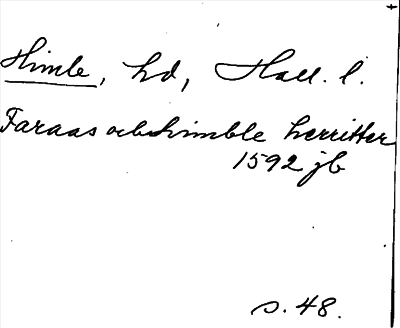 Himle, hd, Hall. l.
Faraas och himble herritter
1592 jb
s. 48.